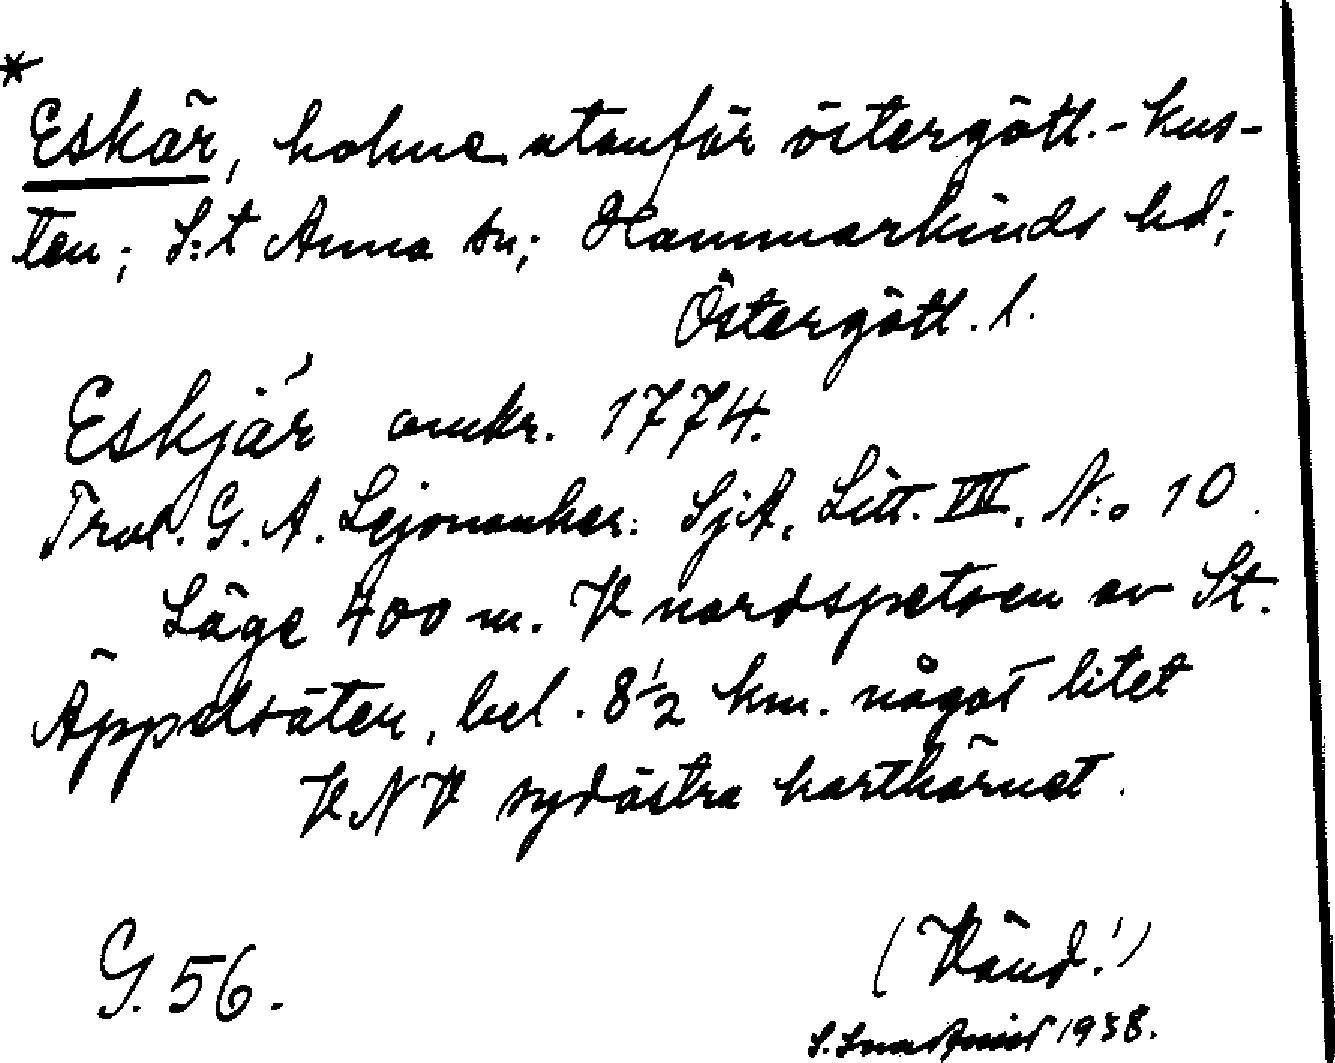 *
Eskär, holme utanför östergötl.-kus-
ten; S:t Anna sn; Hammarkinds hd;
Östergötl. l.
Eskjär omkr. 1774.
Trol. G. A. Lejonanker. SjA, Litt. VII. N:o 10.
Läge 400 m. V nordspetsen av St.
Äppelsäten, bel. 8½ km. något litet
VNV sydöstra kartkörnet.
G. 56.
(Vänd!)
S. 1938.